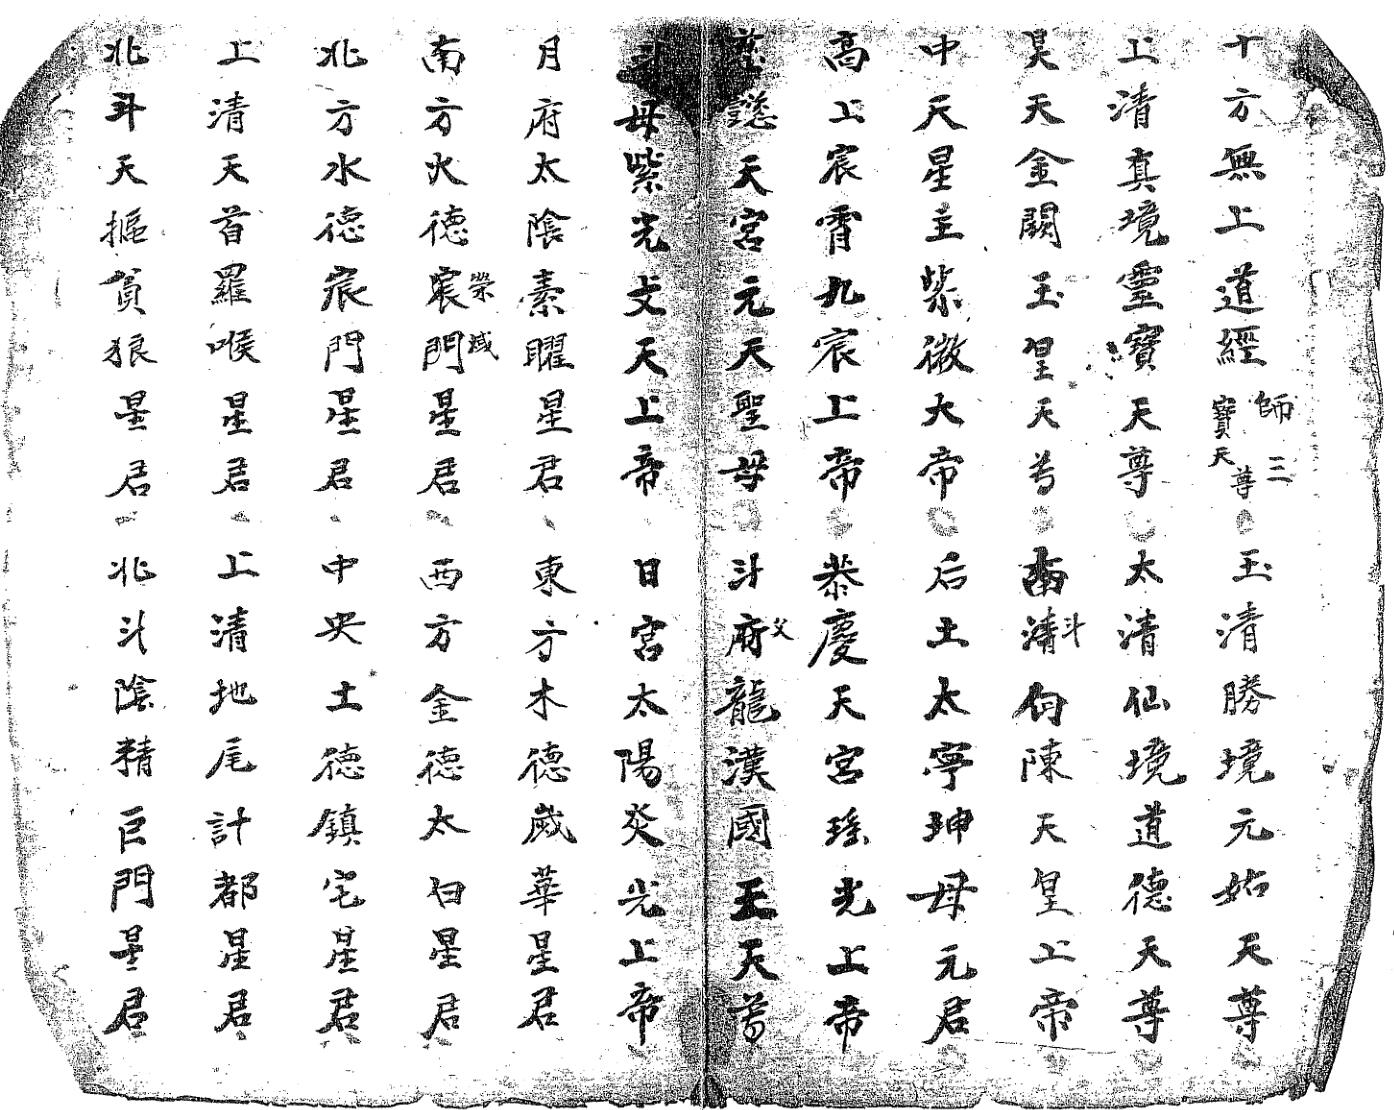 十方無上道經師三寶天尊 玉清勝境元始天尊
上清真境靈寶天尊 太清仙境道德天尊
昊天金闕玉皇天尊 南斗清勾陳天皇上帝
中天星主紫微大帝 后土太寧珅母元君
高上宸霄九宸上帝 恭慶天宮瑤光上帝
慈天宮元天聖母 斗府父龍漢國王天尊
斗母紫光天上帝 日宮太陽炎光上帝
月府太陰素曜星君 東方木德歲華星君
南方火德宸熒惑門星君 西方金德太白星君
北方水德宸門星君 中央土德鎮宅星君
上清天首羅喉星君 上清地尾計都星君
北斗天摳貪狼星君 北斗陰精巨門星君